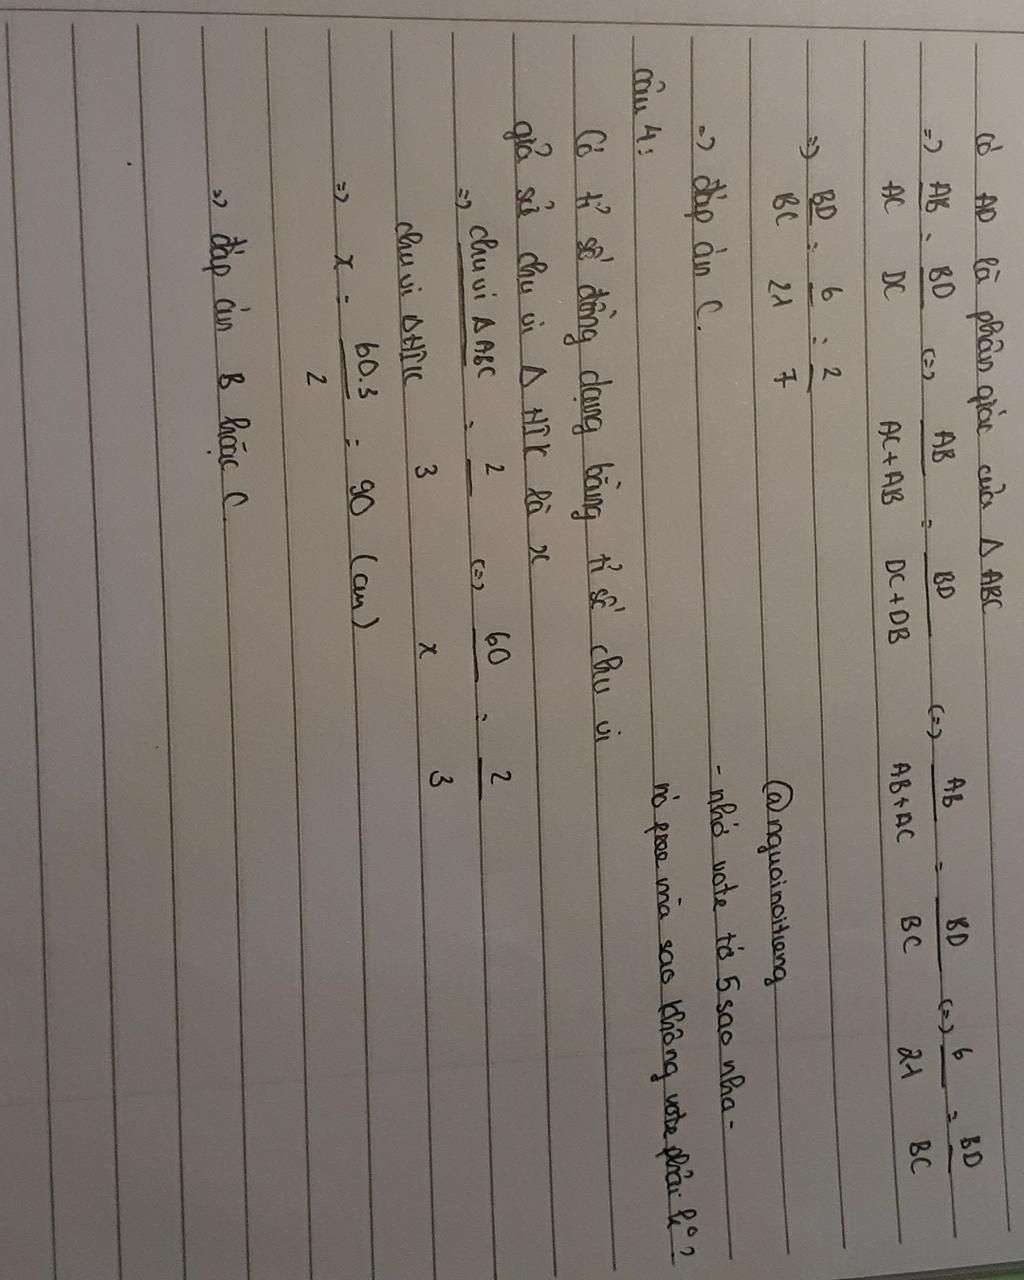 Có AD là phân giác của Δ ABC
=> AB/AC = BD/DC <=> AB/AC+AB = BD/DC+DB <=> AB/AB+AC = BD/BC <=> 6/21 = BD/BC
=> BD/BC = 6/21 = 2/7
@nguoinoitieng
=> đáp án C.
- nhớ vote tớ 5 sao nha -
nó free mà sao không vote phải k°?
câu 4:
Có tỉ số đồng dạng bằng tỉ số chu vi
giả sử chu vi Δ HIK là x
=> chu vi Δ ABC/chu vi Δ HIK = 2/3 <=> 60/x = 2/3
=> x = 60.3/2 = 90 (cm)
=> đáp án B hoặc C.